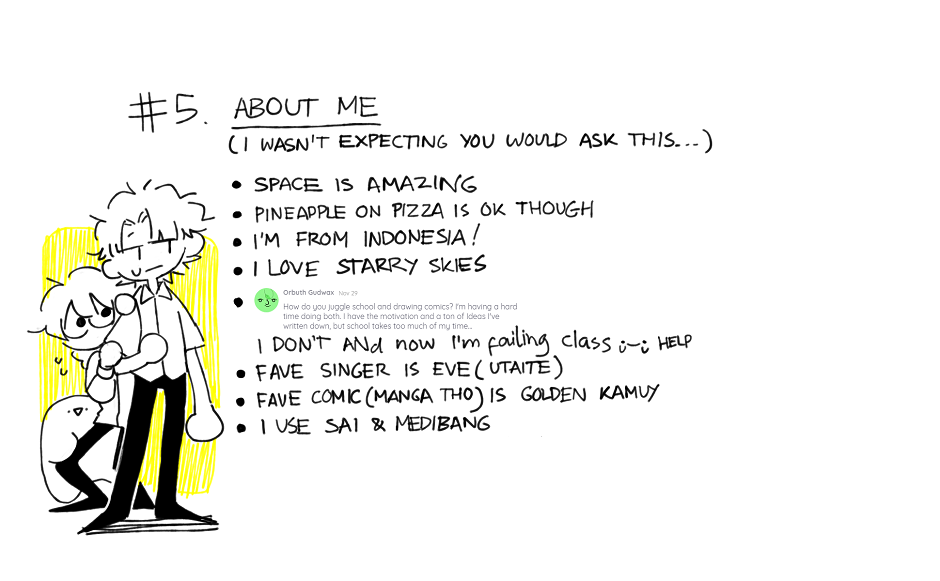 #5. ABOUT ME
(I WASN'T EXPECTING YOU WOULD ASK THIS...)
• SPACE IS AMAZING
• PINEAPPLE ON PIZZA IS OK THOUGH
• I'M FROM INDONESIA!
• I LOVE STARRY SKIES
• Orbuth Gudwax Nov 29
How do you juggle school and drawing comics? I'm having a hard
time doing both. I have the motivation and a ton of Ideas I've
written down, but school takes too much of my time...
I DON'T ANd now I'm failing class ;-; HELP
• FAVE SINGER IS EVE (UTAITE)
• FAVE COMIC (MANGA THO) IS GOLDEN KAMUY
• I USE SAI & MEDIBANG